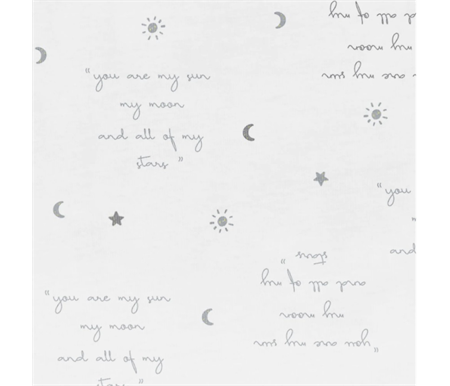 “you are my sun
my moon
and all of my
stars ”
are my sun
my moon
all of my
“you
and
“you are my sun
my moon
and all of my
stars ”
“you are my sun
my moon
and all of my